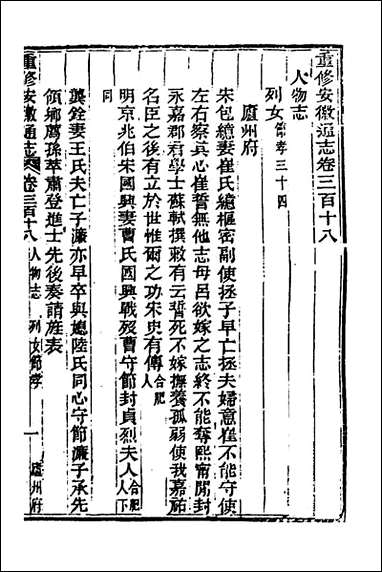 重修安徽通志卷三百十八
人物志
列女節孝三十四
廬州府
宋包繶妻崔氏繶樞密副使拯子早亡拯夫婦意崔不能守使
左右察其心崔誓無他志母呂欲嫁之志終不能奪熙甯間封
永嘉郡君學士蘇軾撰敕有云誓死不嫁撫養孤弱使我嘉祐
名臣之後有立於世惟爾之功宋史有傳合肥人
明京兆伯宋國興妻曹氏國興戰歿曹守節封貞烈夫人合肥人下
同
龔銓妻王氏夫亡子濂亦早卒與媳陸氏同心守節濂子承先
領鄉薦孫萃肅登進士先後奏請旌表
重修安徽通志 卷三百十八 人物志 列女節孝 一 廬州府